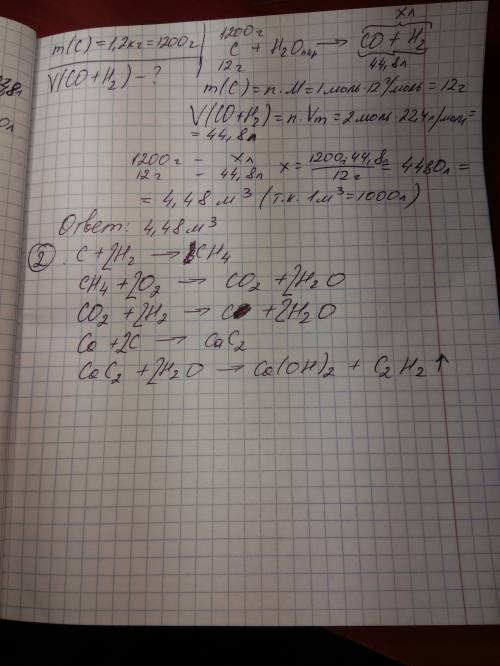 m(C) = 1,2 кг = 1200 г
V(CO + H₂) – ?
1200 г xл
C + H₂Oпар → CO + H₂
12 г 44,8 л
m(C) = n·M = 1 моль · 12 г/моль = 12 г
V(CO + H₂) = n·Vm = 2 моль · 22,4 л/моль =
= 44,8 л
1200 г – xл x = 1200г·44,8л / 12 г = 4480 л =
12 г – 44,8 л
= 4,48 м³ (т.к. 1 м³ = 1000 л)
Ответ: 4,48 м³
② C + 2H₂ → CH₄
CH₄ + 2O₂ → CO₂ + 2H₂O
CO₂ + 2H₂ → C + 2H₂O
Ca + 2C → CaC₂
CaC₂ + 2H₂O → Ca(OH)₂ + C₂H₂ ↑